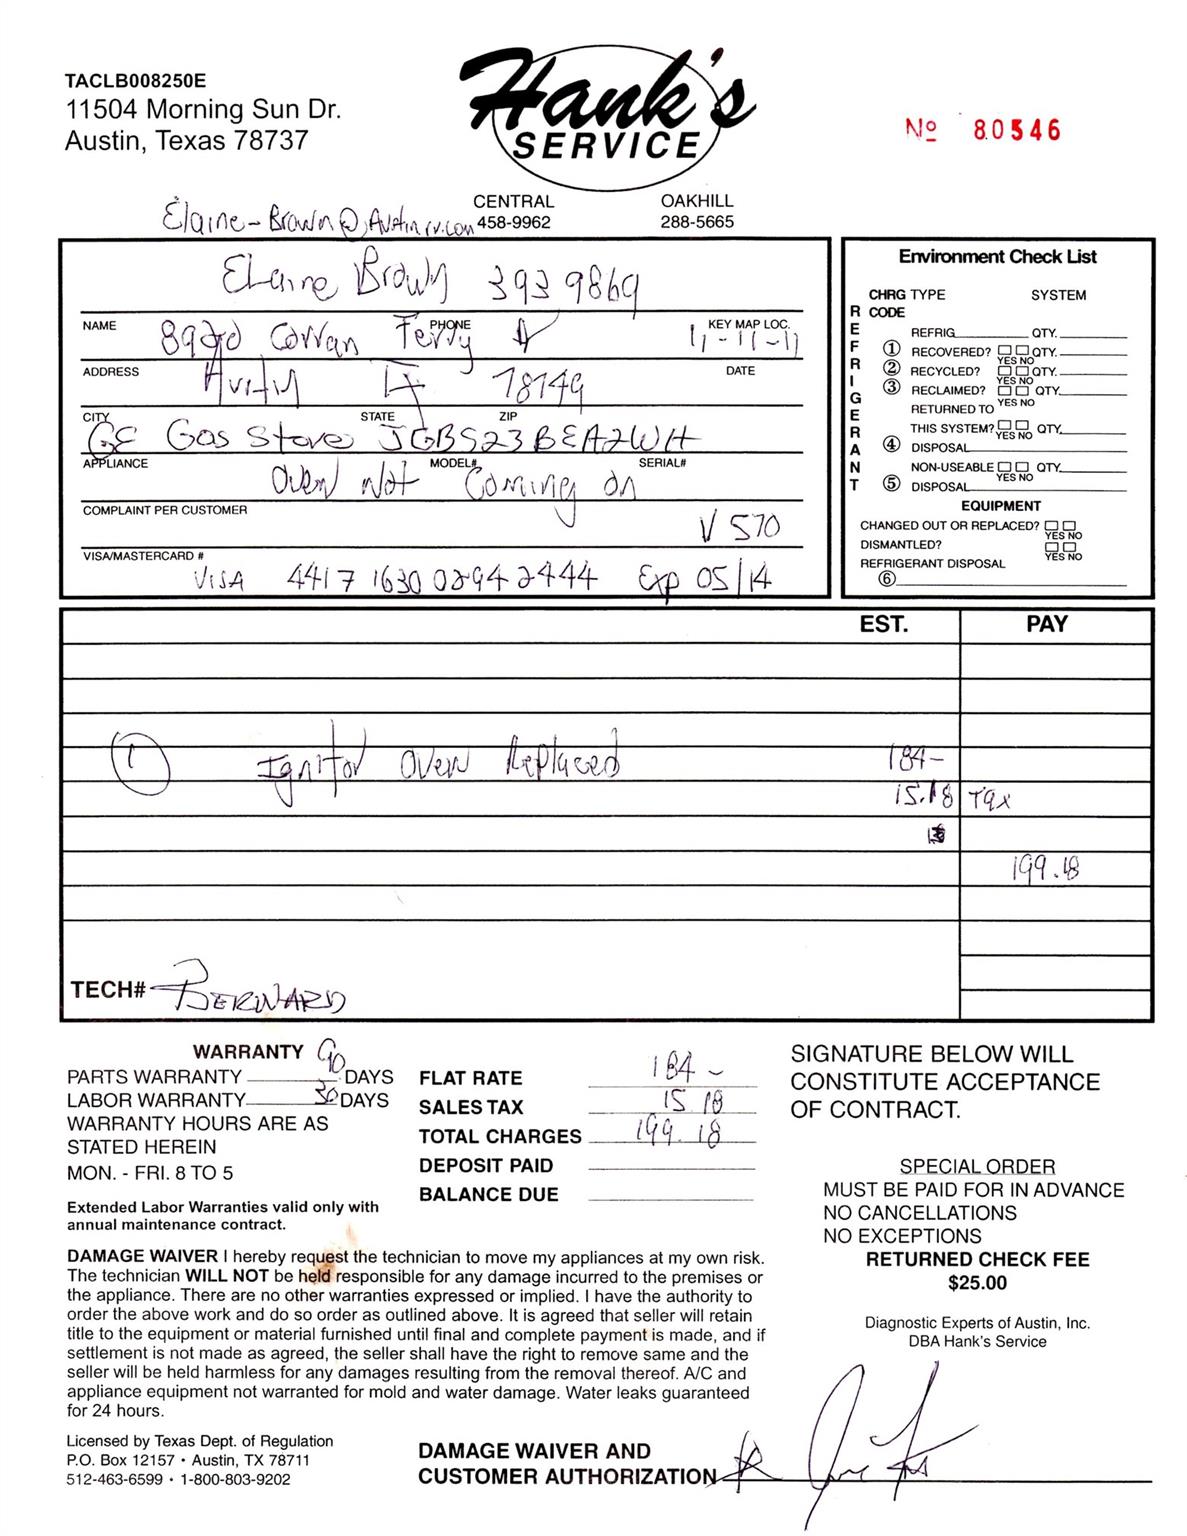 TACLB008250E
11504 Morning Sun Dr.
Austin, Texas 78737
Hank's
SERVICE
No 80546
CENTRAL
458-9962
OAKHILL
288-5665
Elaine-Brown@Austin.rr.com
Elaine Brown 393 9869
NAME PHONE KEY MAP LOC.
Cowan Ferry 11-11-11
ADDRESS DATE
Austin TX 78749
CITY STATE ZIP
GE Gas Stove JGBS23BEA2WH
APPLIANCE MODEL# SERIAL#
Oven Not Coming on
COMPLAINT PER CUSTOMER
V 570
VISA/MASTERCARD #
VISA 4417 1630 0294 2444 Exp 05/14
Environment Check List
REFRIGERANT
CHRG TYPE SYSTEM
CODE
REFRIG. QTY.
1 RECOVERED? QTY.
YES NO
2 RECYCLED? QTY.
YES NO
3 RECLAIMED? QTY.
YES NO
RETURNED TO
THIS SYSTEM? QTY.
YES NO
4 DISPOSAL
NON-USEABLE QTY.
YES NO
5 DISPOSAL
EQUIPMENT
CHANGED OUT OR REPLACED?
YES NO
DISMANTLED?
YES NO
REFRIGERANT DISPOSAL
6
EST. PAY
1 Ignitor Oven Replaced 184-
15.18 Tax
199.18
TECH# BERNARD
WARRANTY
PARTS WARRANTY 90 DAYS
LABOR WARRANTY 30 DAYS
WARRANTY HOURS ARE AS
STATED HEREIN
MON. - FRI. 8 TO 5
Extended Labor Warranties valid only with
annual maintenance contract.
FLAT RATE 184-
SALES TAX 15.18
TOTAL CHARGES 199.18
DEPOSIT PAID
BALANCE DUE
SIGNATURE BELOW WILL
CONSTITUTE ACCEPTANCE
OF CONTRACT.
SPECIAL ORDER
MUST BE PAID FOR IN ADVANCE
NO CANCELLATIONS
NO EXCEPTIONS
RETURNED CHECK FEE
$25.00
DAMAGE WAIVER I hereby request the technician to move my appliances at my own risk.
The technician WILL NOT be held responsible for any damage incurred to the premises or
the appliance. There are no other warranties expressed or implied. I have the authority to
order the above work and do so order as outlined above. It is agreed that seller will retain
title to the equipment or material furnished until final and complete payment is made, and if
settlement is not made as agreed, the seller shall have the right to remove same and the
seller will be held harmless for any damages resulting from the removal thereof. A/C and
appliance equipment not warranted for mold and water damage. Water leaks guaranteed
for 24 hours.
Diagnostic Experts of Austin, Inc.
DBA Hank's Service
Licensed by Texas Dept. of Regulation
P.O. Box 12157 • Austin, TX 78711
512-463-6599 • 1-800-803-9202
DAMAGE WAIVER AND
CUSTOMER AUTHORIZATION